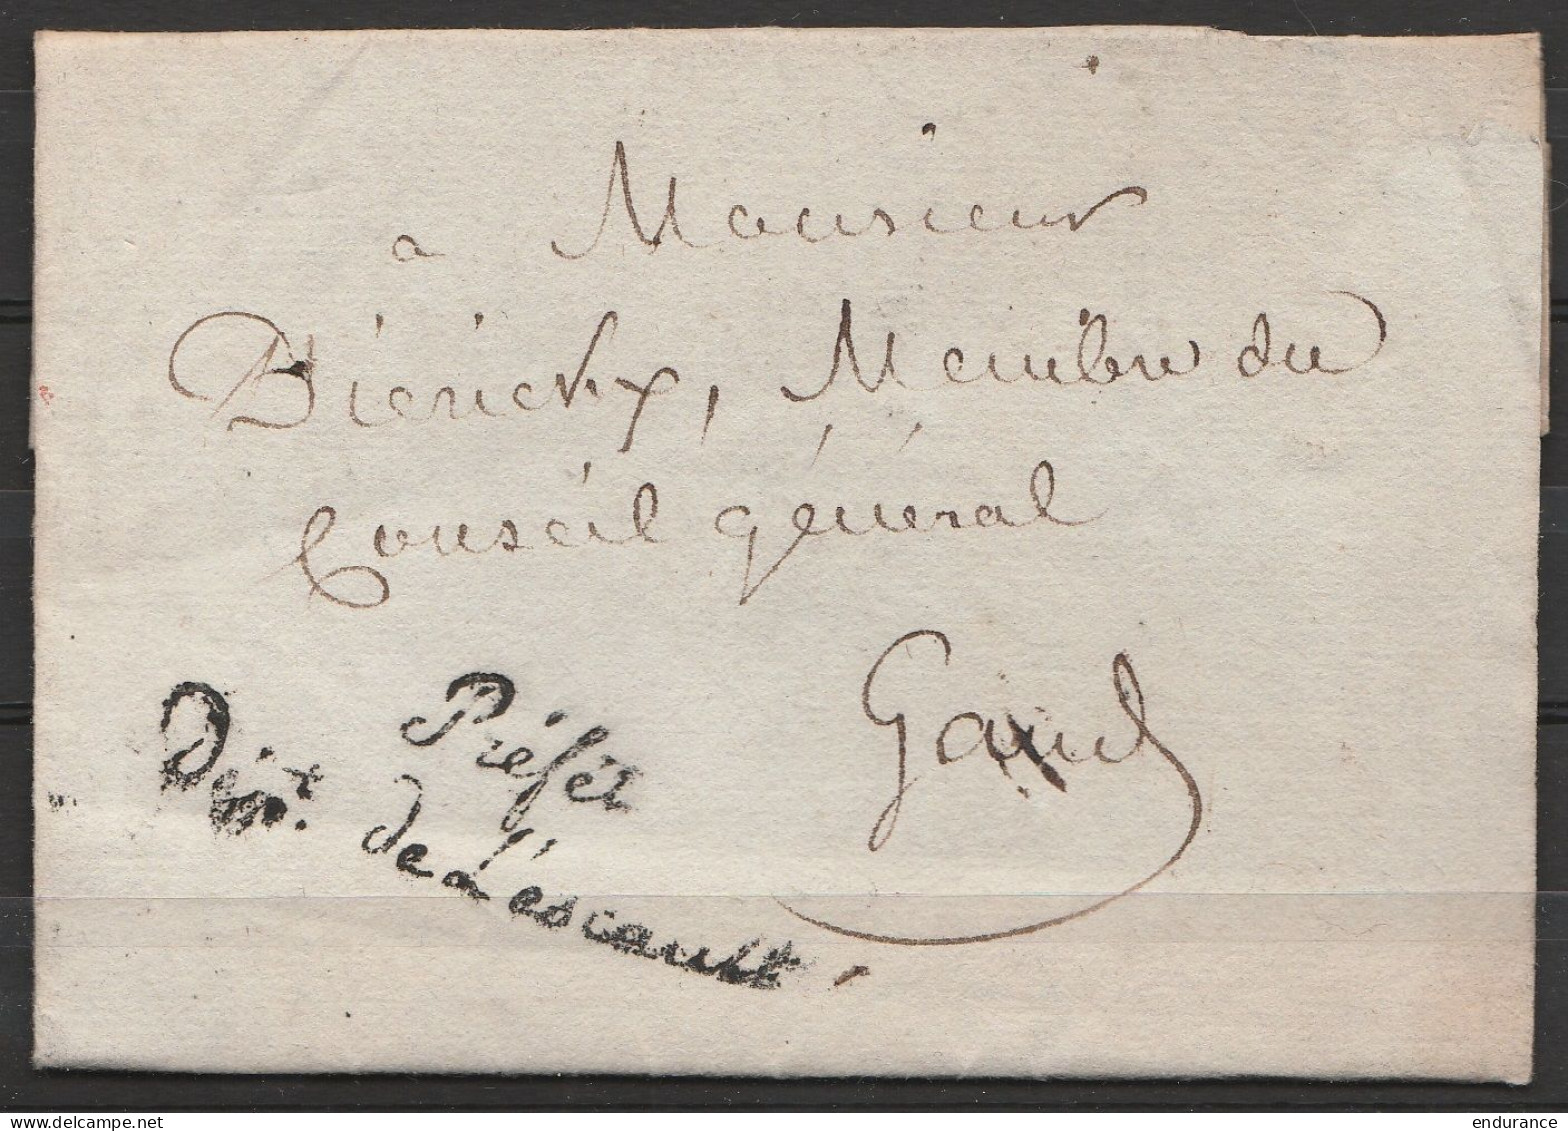 a Monsieur
Dierickx, Membre du
Conseil général
Gand
Préfet
Dépt. de L'escault
endurance